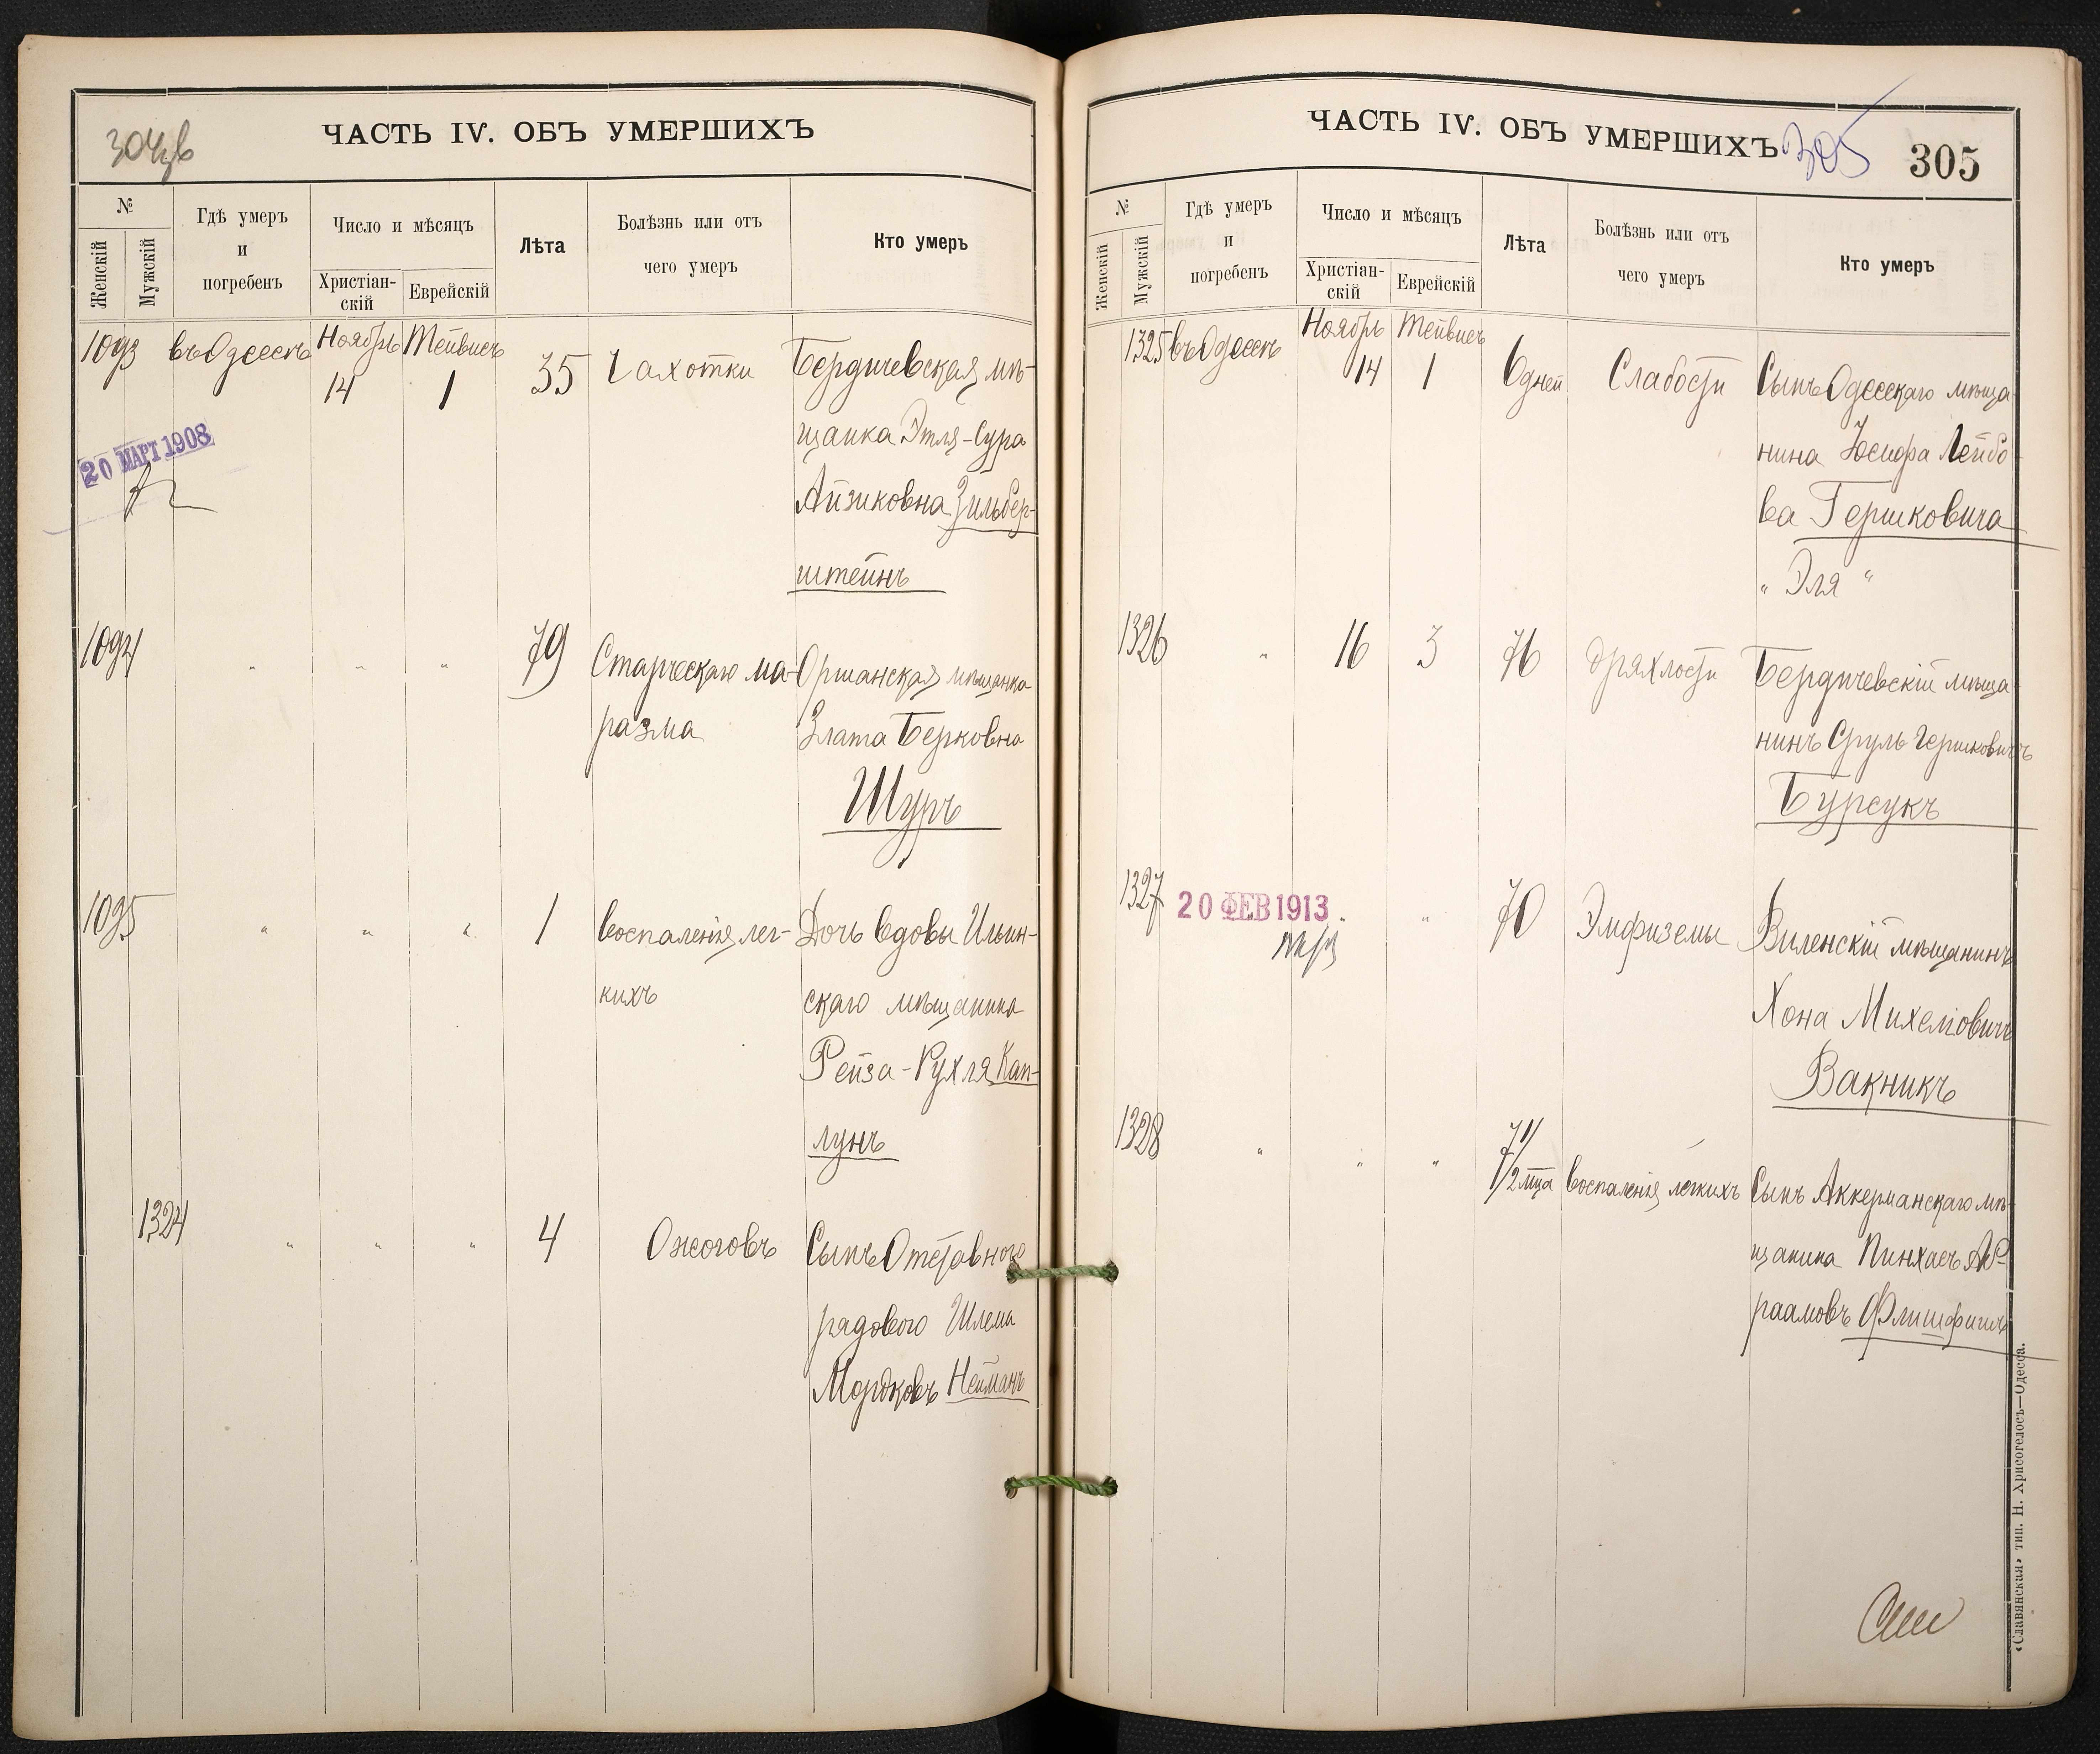 304зв
ЧАСТЬ IV. ОБЪ УМЕРШИХЪ
№
Женскій
Мужскій
Гдѣ умеръ
и
погребенъ
Число и мѣсяцъ
Христіан-
скій
Еврейскій
Лѣта
Болѣзнь или отъ
чего умеръ
Кто умеръ
1093 въ Одессѣ Ноябрь Тейвисъ
14 1 35 Чахотки Бердичевская мѣ-
щанка Этля-Сура
Айзиковна Зильбер-
штейнъ
20 МАРТ 1908
1094 " " " 79 Старческаго ма- Оршанская мѣщанка
разма Злата Берковна
Шуръ
1095 " " " 1 воспаленія лег- Дочь вдовы Ильин-
кихъ скаго мѣщанина
Рейза-Рухля Кап-
лунъ
1324 " " " 4 Ожоговъ Сынъ Отставного
рядового Шлема
Мордковъ Нейманъ
ЧАСТЬ IV. ОБЪ УМЕРШИХЪ
305
305
№
Женскій
Мужскій
Гдѣ умеръ
и
погребенъ
Число и мѣсяцъ
Христіан-
скій
Еврейскій
Лѣта
Болѣзнь или отъ
чего умеръ
Кто умеръ
1325 въ Одессѣ Ноябрь Тейвисъ
14 1 6 дней Слабости Сынъ Одесскаго мѣща-
нина Іосифа Лейбо-
ва Гершковича
" Эля "
1326 " 16 3 76 дряхлости Бердичевскій мѣща-
нинъ Сруль Гершковичъ
Бурсукъ
1327 20 ФЕВ 1913 " " 70 Эмфиземы Виленскій мѣщанинъ
Хона Михелювичъ
Вакникъ
1328 " " " 7 1/2 мца воспаленія легкихъ Сынъ Аккерманскаго мѣ-
щанина Пинхасъ Аб-
раамовъ Флишфишъ
«Славянская» тип. Н. Хрисогелосъ—Одесса.